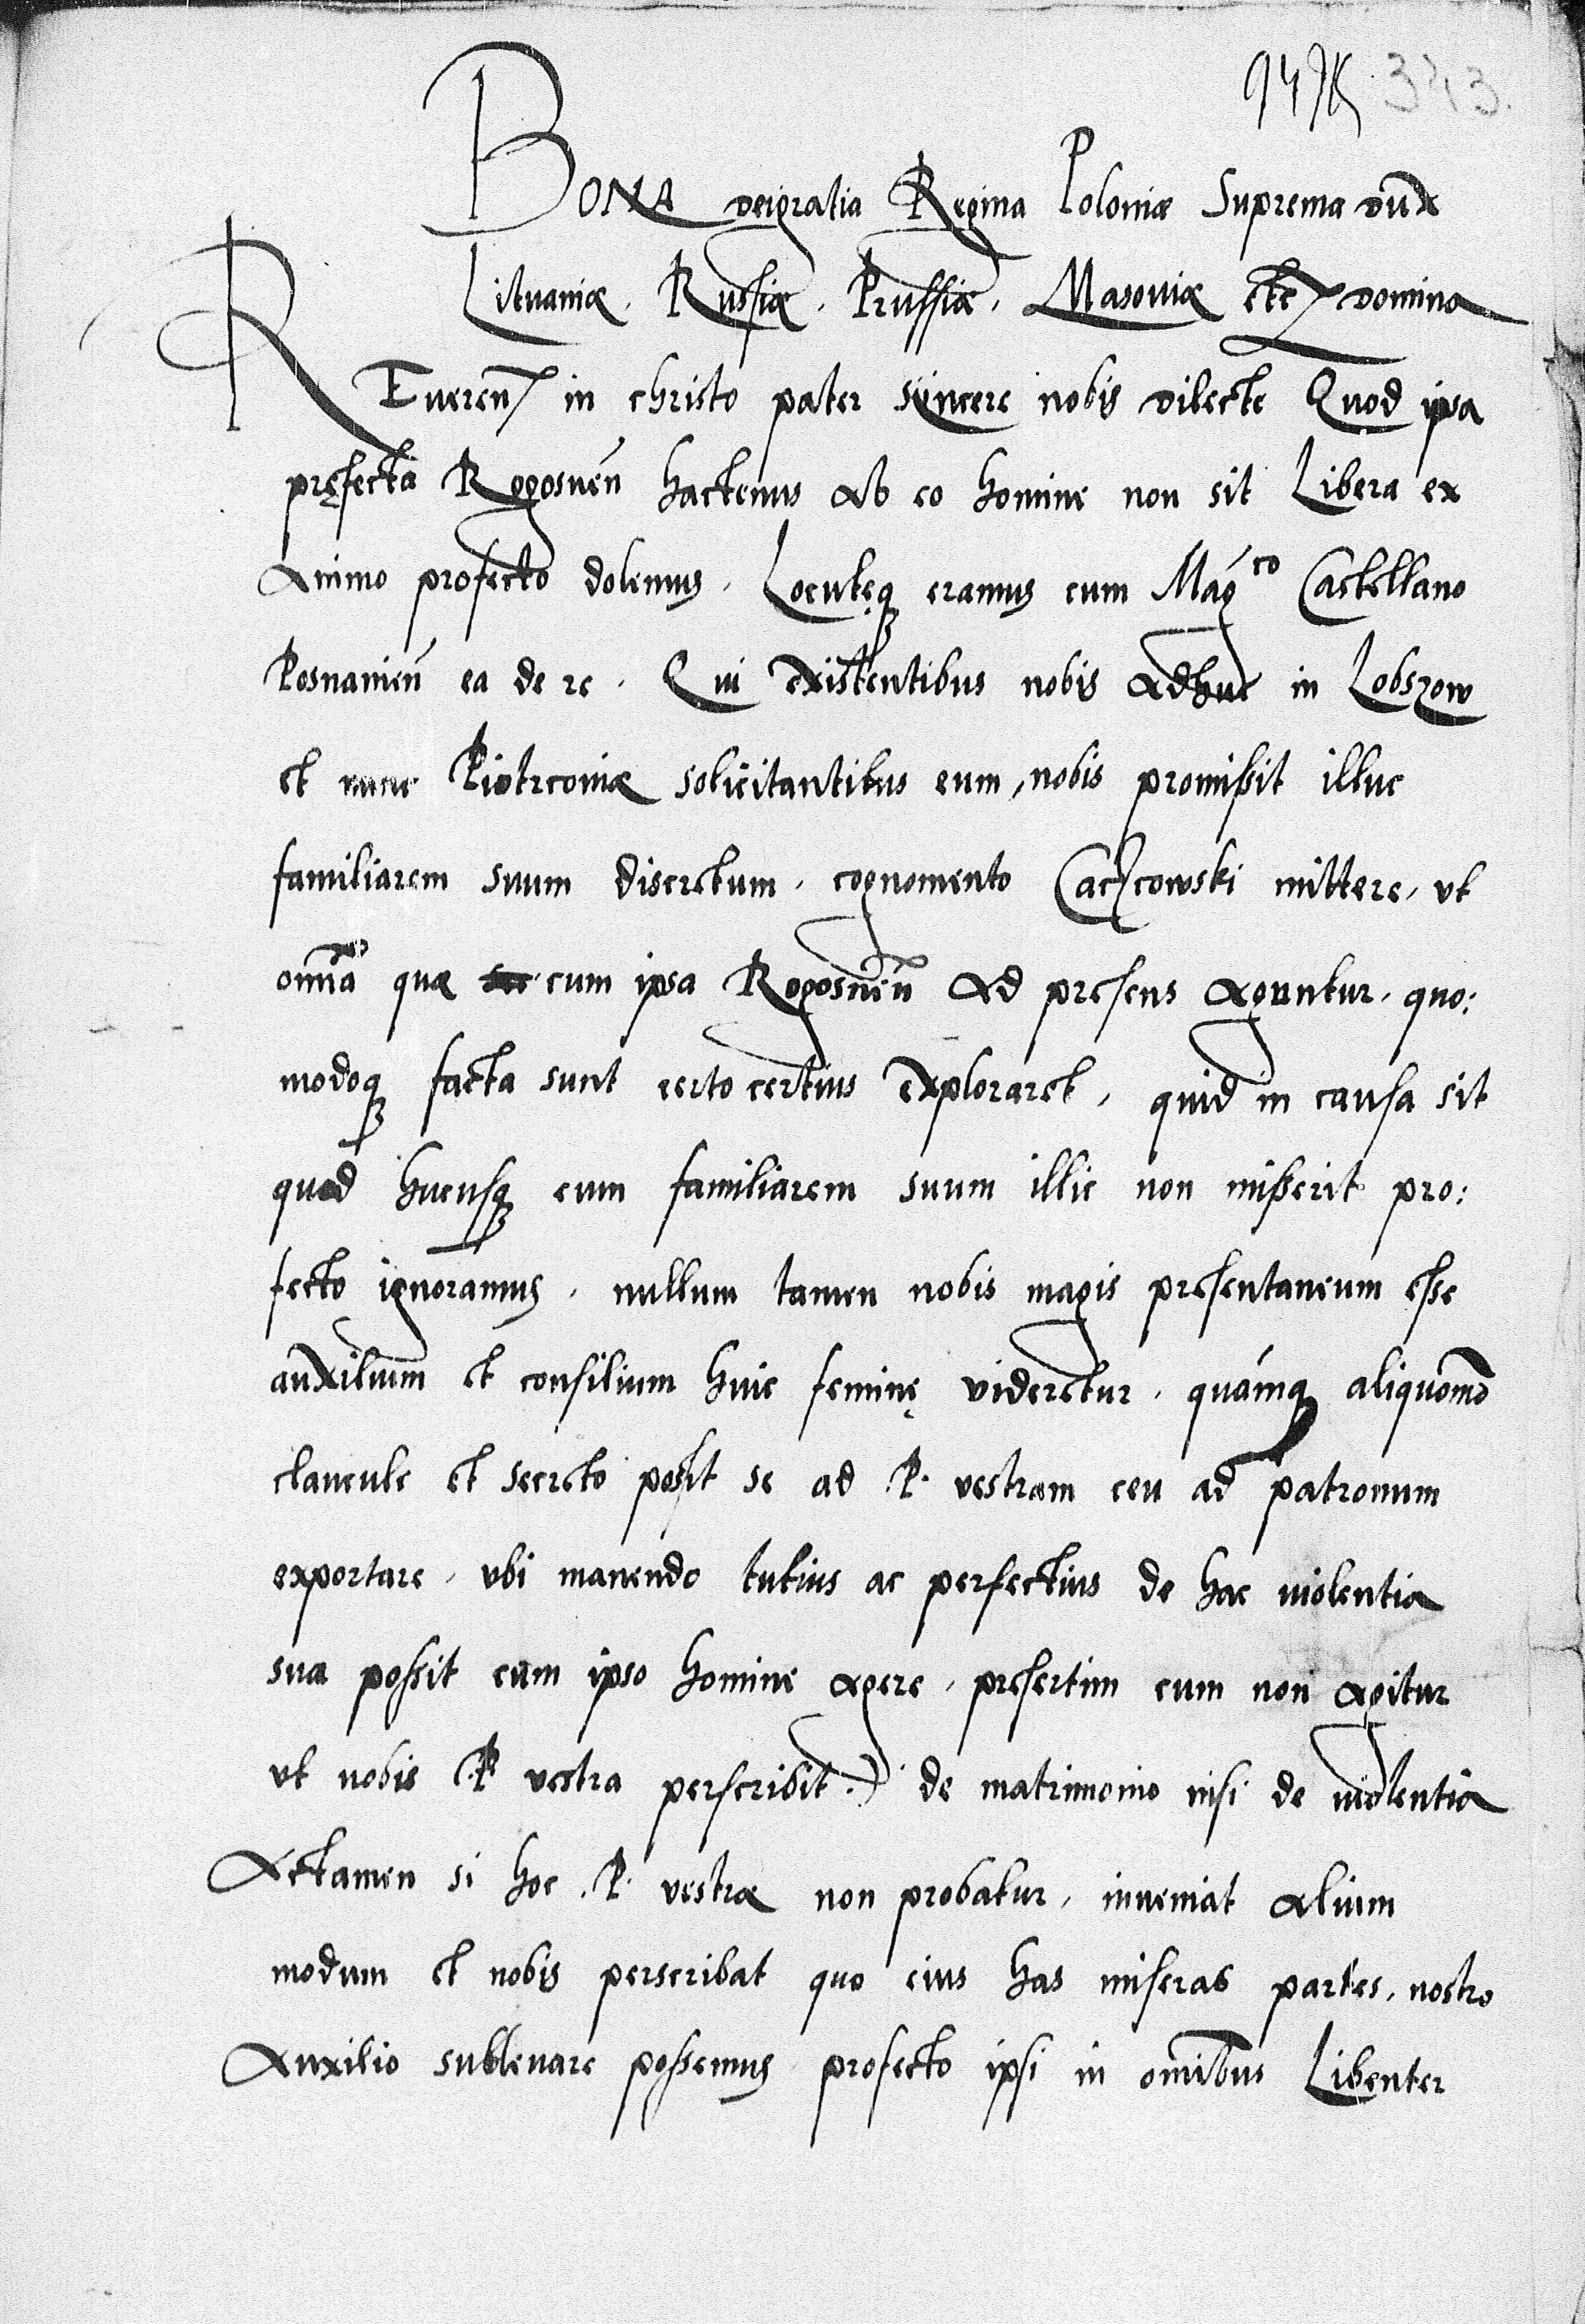 343.
BONA deigratia Regina Poloniæ Suprema dux
Lituaniæ. Russiæ. Prussiæ. Masoviæ etc domina
REveren in christo pater syncere nobis dilecte Quod ipsa
pręfecta Rogosnen hactenus ab eo homine non sit Libera ex
animo profecto dolemus. Locutęq eramus cum Mag^co Castellano
Posnanien ea de re. Qui existentibus nobis adhuc in Lobzow
et nunc Piotrcoviæ solicitantibus eum, nobis promissit illuc
familiarem suum discretum. cognomento Caczcowski mittere, ut
omnia quæ cum ipsa Rogosnen ad presens aguntur. quo:
modoq facta sunt certo certius exploraret, quid in causa sit
quod hucusq eum familiarem suum illic non misserit pro:
fecto ignoramus. nullum tamen nobis magis presentaneum esse
auxilium et consilium huic feminę videretur. quámq aliquomo
clancule et secreto possit se ad .P. vestram ceu ad patronum
exportare. ubi manendo tutius ac perfectius de hac violentia
sua possit cum ipso homine agere. presertim cum non agitur
ut nobis (.P vestra perscribit.) de matrimonio nisi de violentia
Attamen si hoc .P. vestræ non probatur, inveniat alium
modum et nobis perscribat quo eius has miseras partes, nostro
auxilio sublevare possemus profecto ipsi in omnibus Libenter